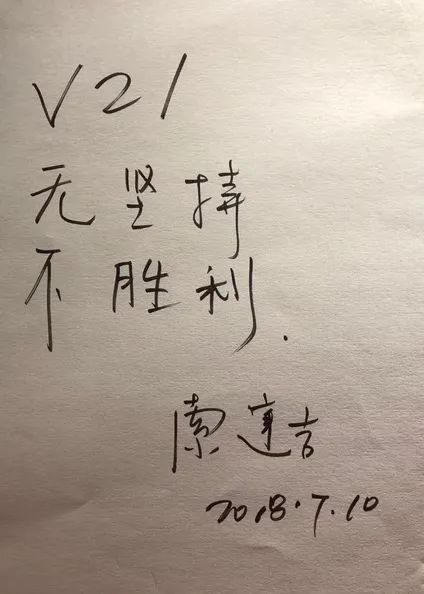 V21
无坚持
不胜利.
索達吉
2018.7.10